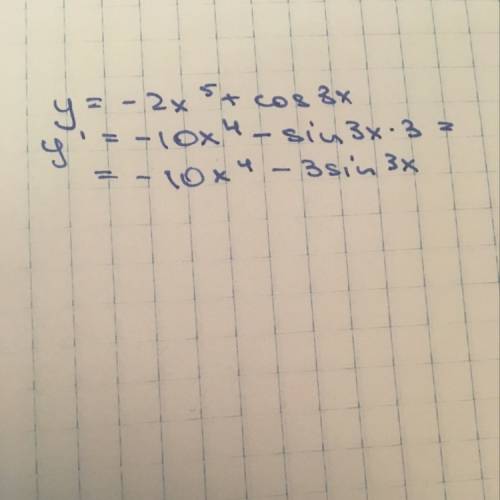 y = -2x⁵ + cos 3x
y' = -10x⁴ - sin 3x · 3 =
= -10x⁴ - 3 sin 3x